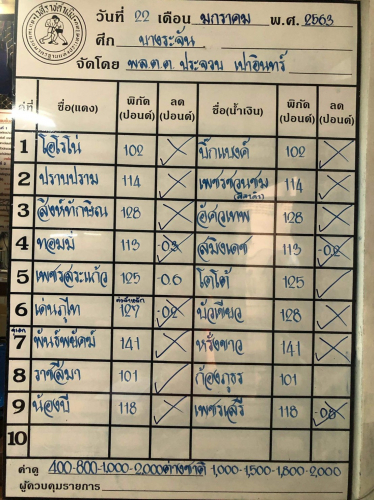 วันที่ 22 เดือน มกราคม พ.ศ. 2563
ศึก บางระจัน
จัดโดย พ.ต.ต. ประจวบ เปาอินทร์
คู่ที่ ชื่อ(แดง) พิกัด (ปอนด์) ลด (ปอนด์) ชื่อ(น้ำเงิน) พิกัด (ปอนด์) ลด (ปอนด์)
1 ไอโรโน่ 102 บิ๊กแบงค์ 102
2 ปราบปราม 114 114
3 สิงห์ทักษิณ 128 อัศวเทพ 128
4 ทอมมี่ 113 -0.3 สมิงเดช 113 -0.2
5 เพชรสระแก้ว 125 -0.6 โตโต้ 125
6 เด่นภูไท 127 -0.2 บัวเขียว 128
7 พันธ์พยัคฆ์ 141 ฝรั่งขาว 141
8 ราชสีมา 101 ก้องภูธร 101
9 น้องบี 118 เพชรเสรี 118 -0.8
10
ค่าดู 400-800-1,000-2,000 ต่างชาติ 1,000-1,500-1,800-2,000
ผู้ควบคุมรายการ